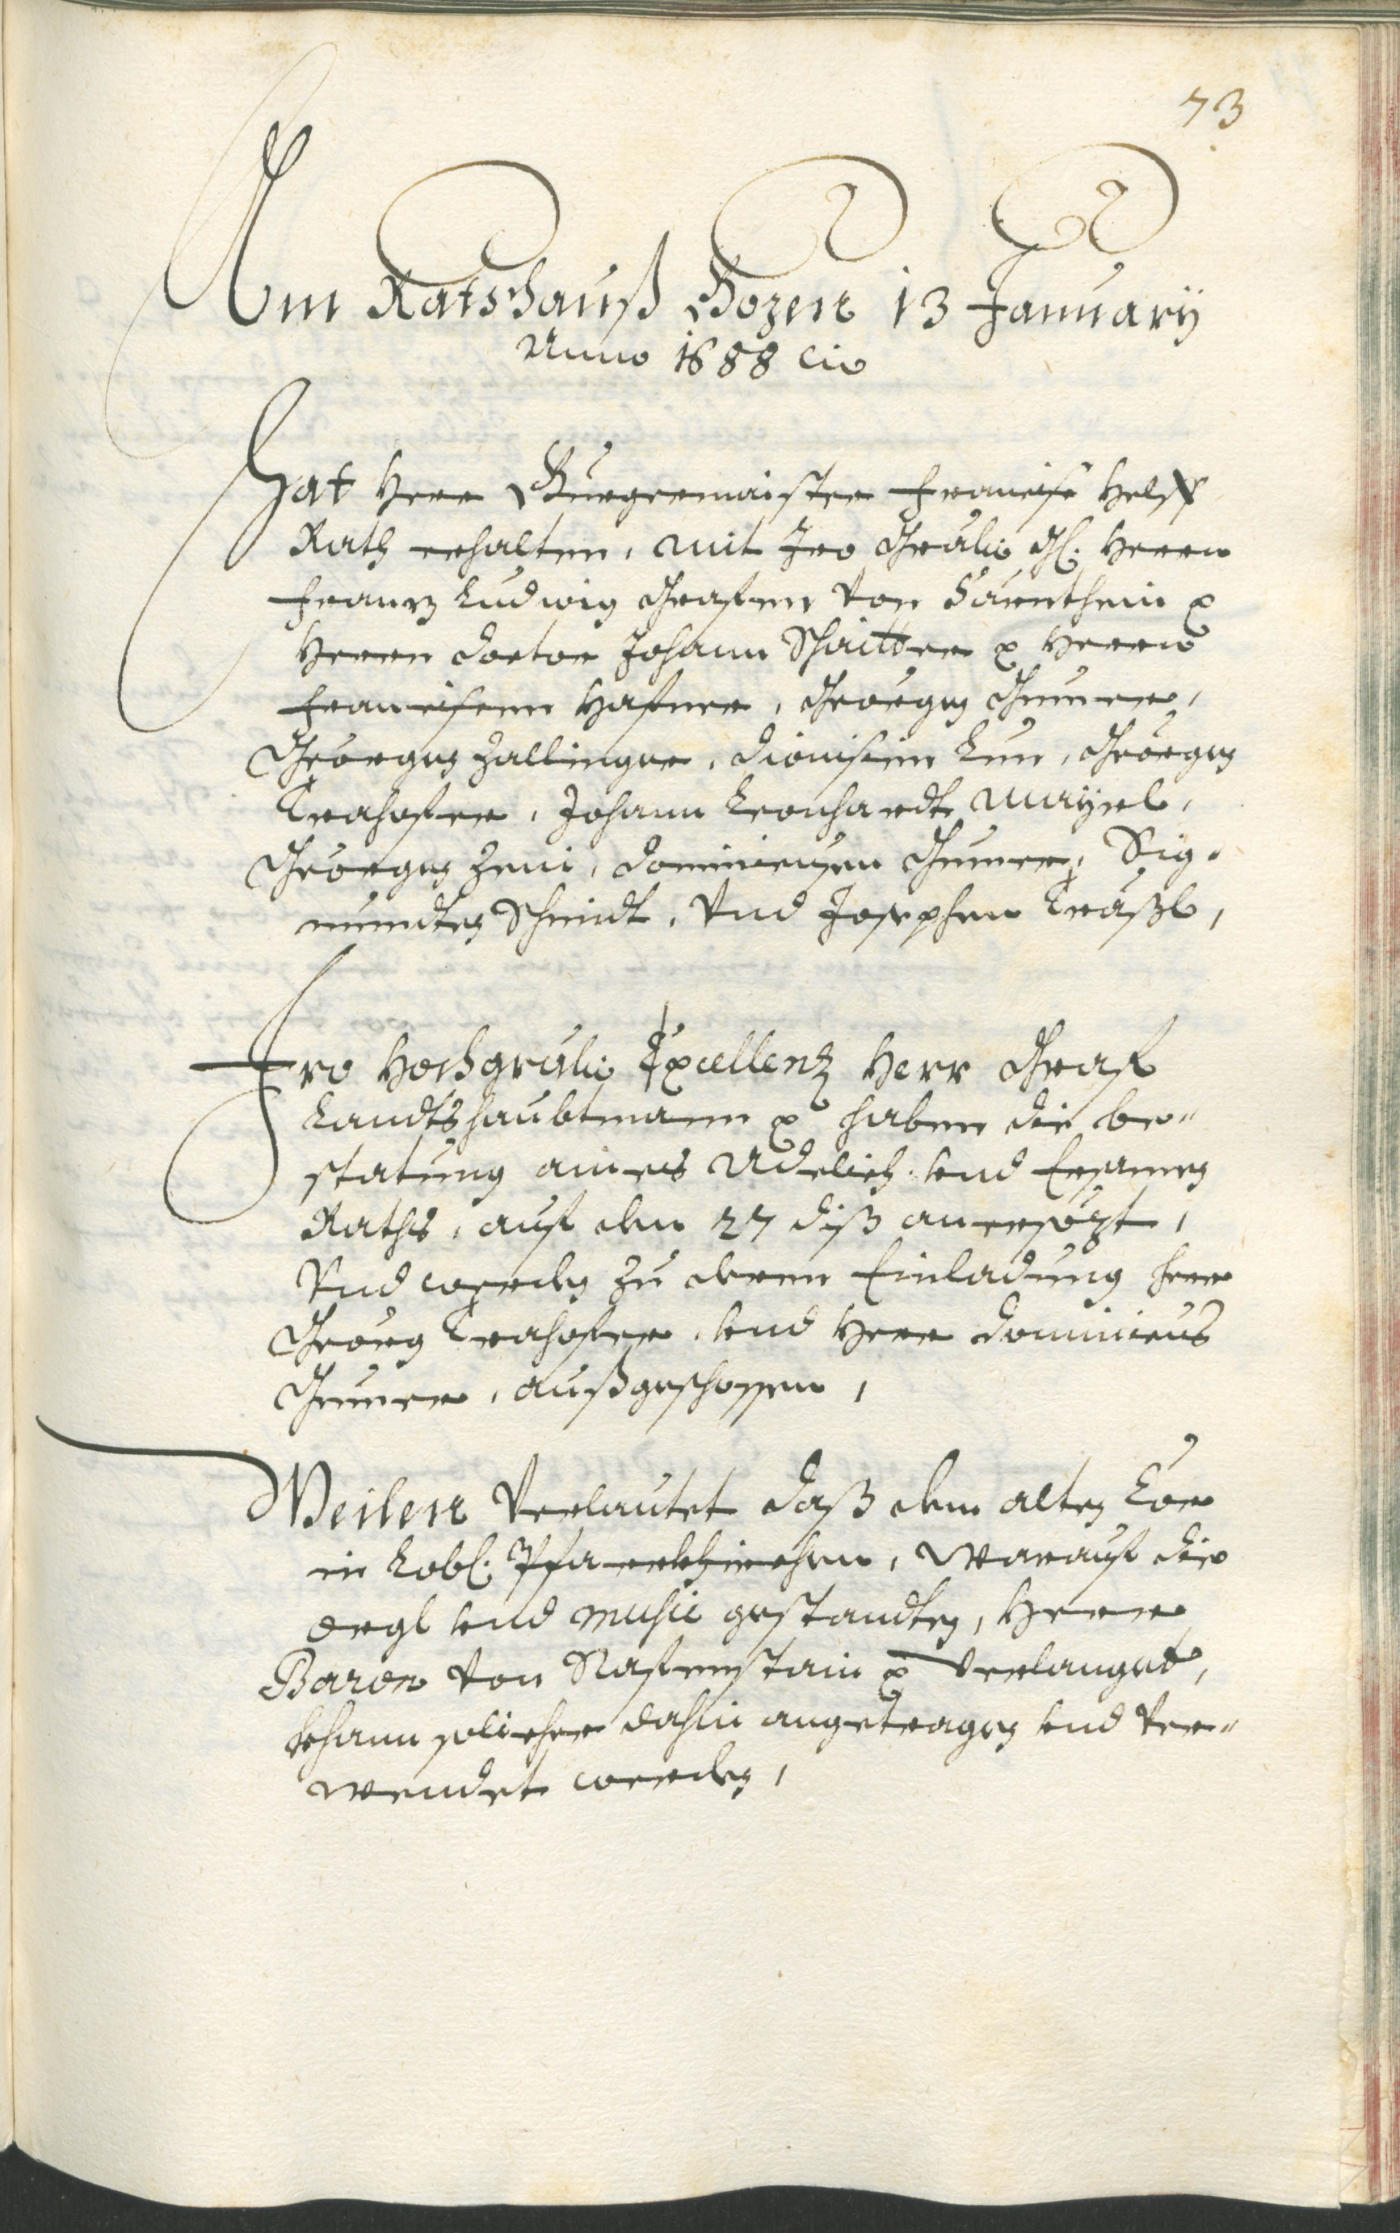 73
Am Ratshauß Bozen 13 January
Anno 1688 etc
Hat Herr Burgermaister Francisc Helff
Rath erhalten, mit Iro Gräfl: Gl: Herrn
Franz Ludwig Grafen von Särnthein etc
Herrn Doctor Johann Schaitter etc Herrn
Franciscen Hafner, Georgen Gumer,
Georgen Zallinger, Dionisien Lun, Georgen
Trahofer, Johann Leonhardt Mayrl,
Georgen Zeni, Dominicusen Gumer, Sig-
mundten Schmidt, Vnd Josephen Kräßl,
Iro Hochgräfl: Excellenz Herr Graf
Landtshaubtmann etc haben die be-
statung aines Adelich: vnd Ersamen
Raths, auf den 27 diß anersözt,
Vnd werden zu deren Einladung Herr
Georg Trahofer, vnd Herr Dominicus
Gumer, außgeschossen,
Weilen verlautet daß dem alten Cor
in Lobl: Pfarrkhirchen, warauf die
Orgl vnd Music gestandten, Herr
Baron von Stafenstain etc verlanget,
khann solicher dahin angetragen vnd ver-
wendet werden,